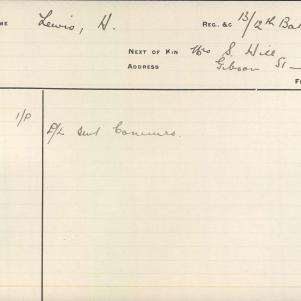 ME Lewis, H. REG. &C 13/12th Bat
NEXT OF KIN Mrs S. Hill
ADDRESS Gibson St
F
1/P P/L sent Commrs.